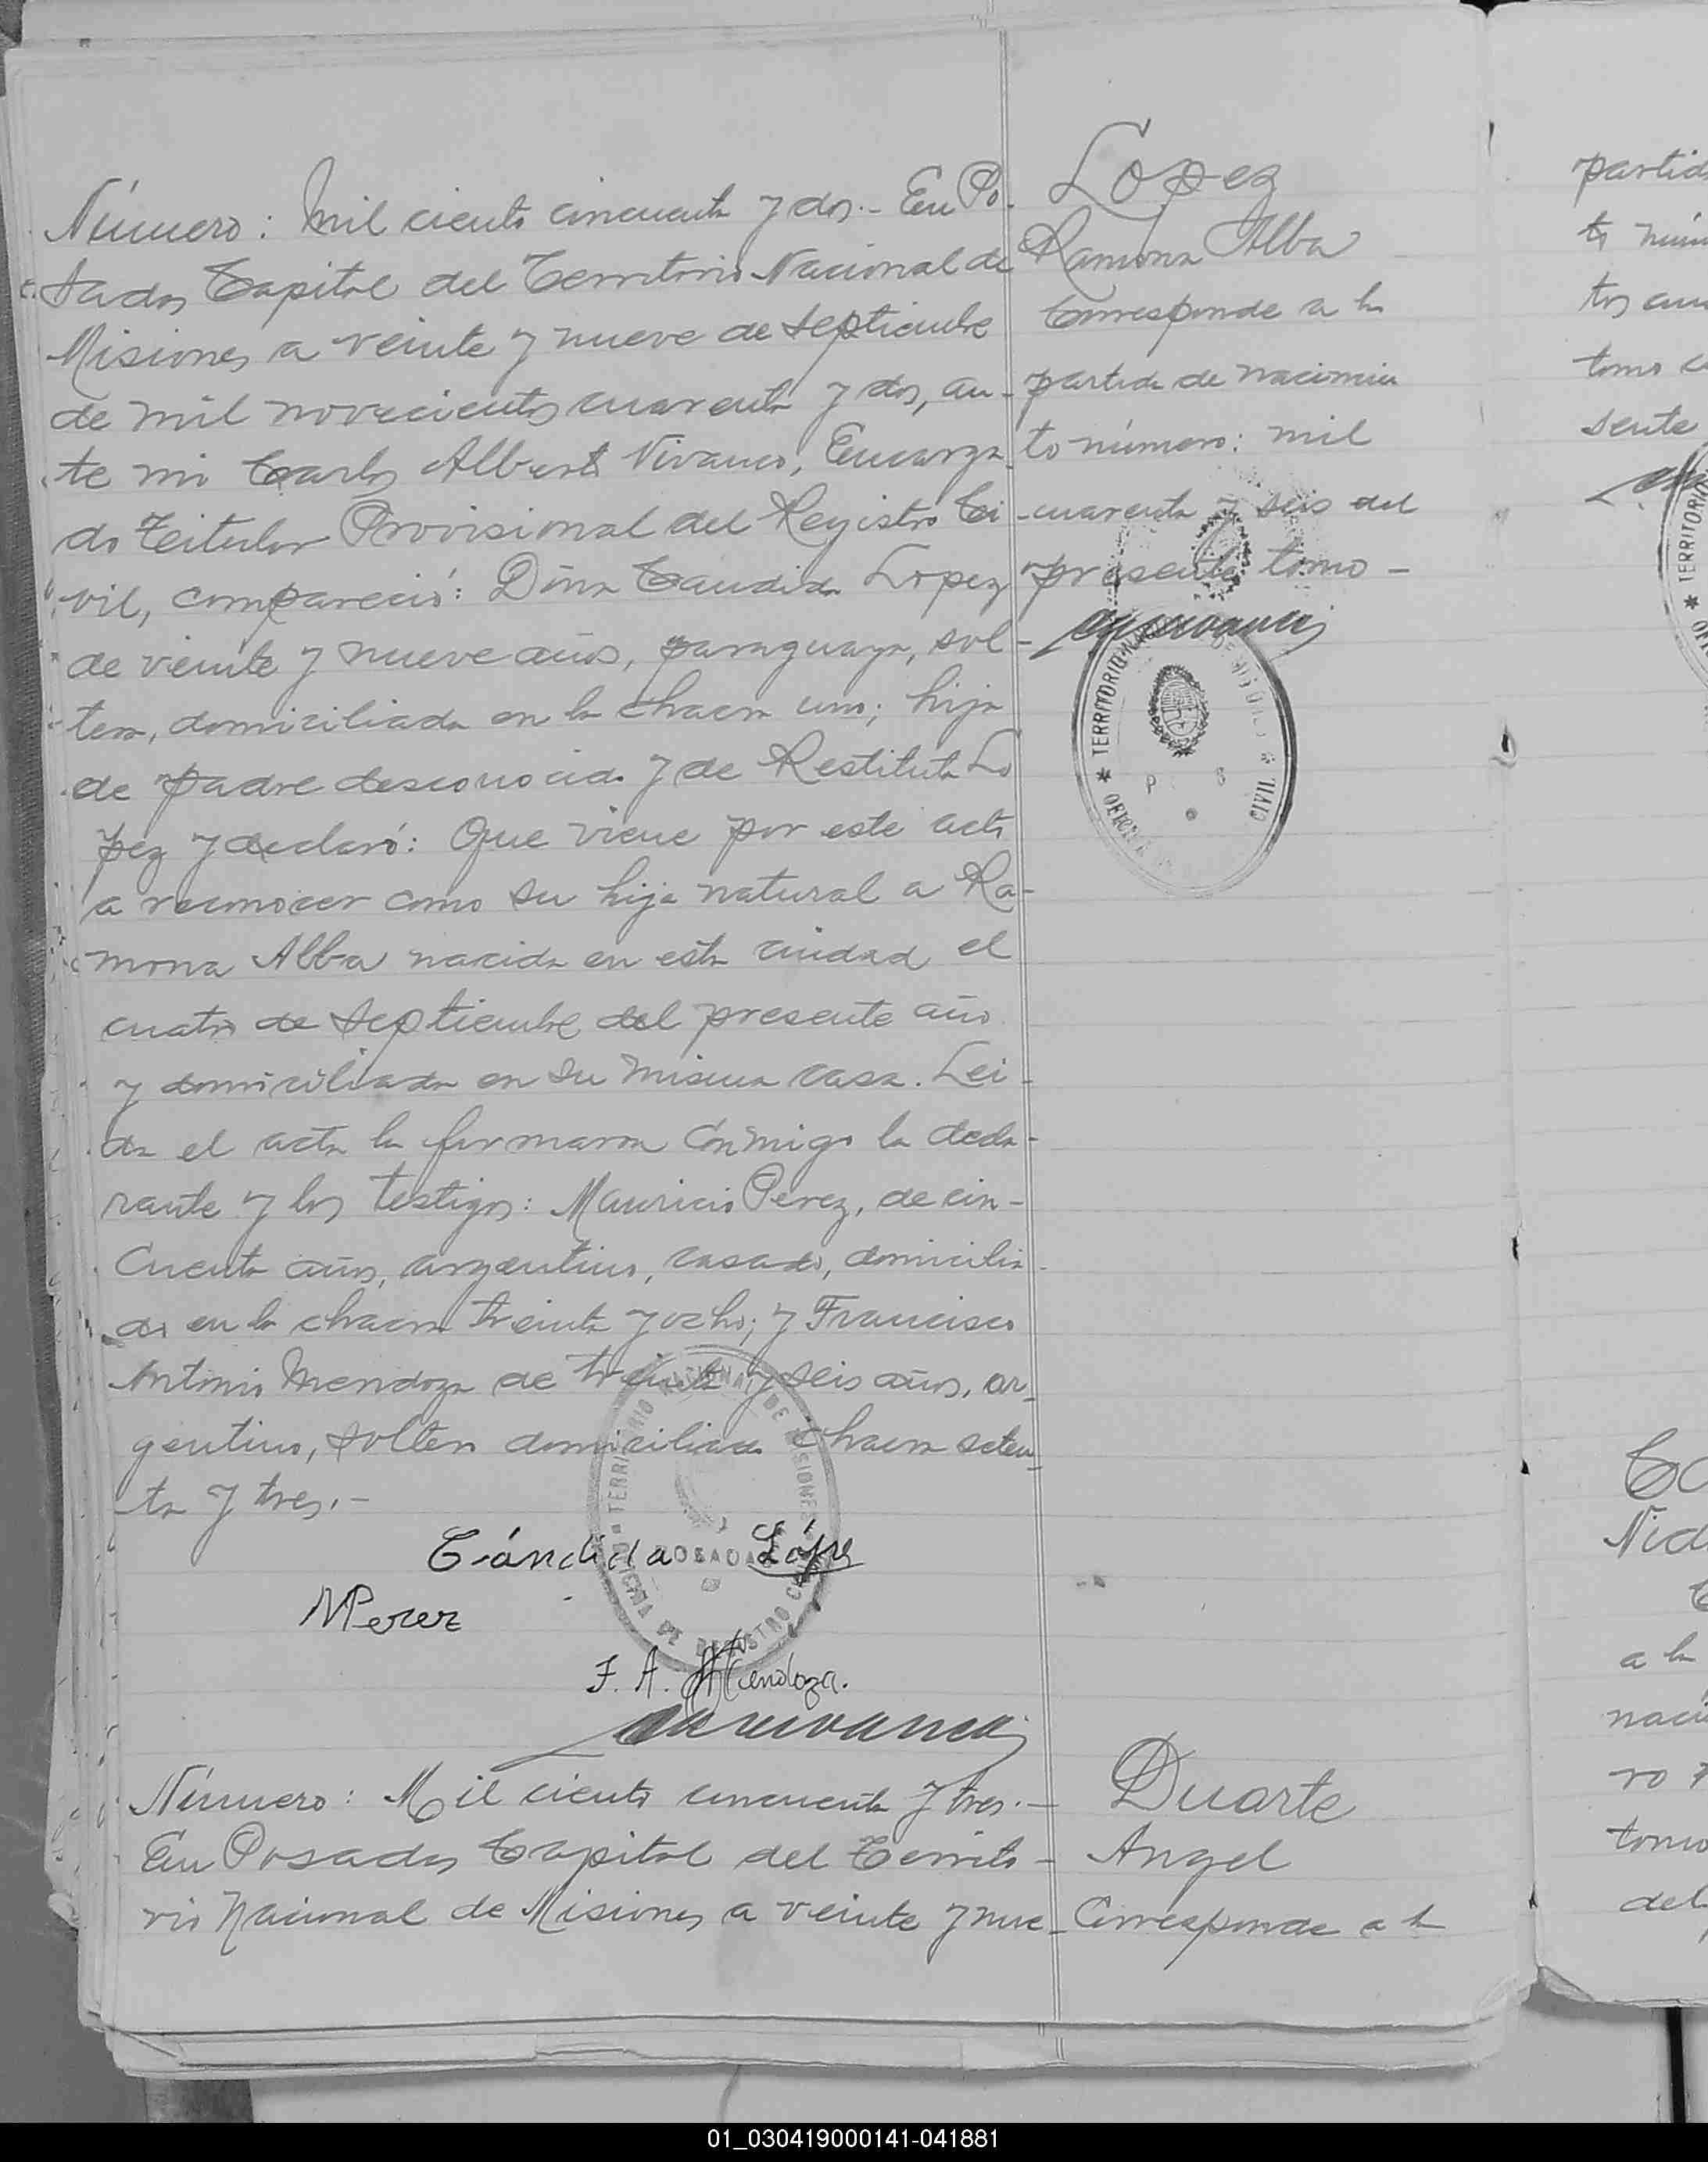 Número: Mil ciento cincuenta y dos.- En Po-
sadas Capital del Territorio Nacional de
Misiones a veinte y nueve de septiembre
de mil novecientos cuarenta y dos, an-
te mi Carlos Alberto Vivanco, Encarga-
do Titular Provisional del Registro Ci-
vil, compareció: Doña Candida Lopez
de veinte y nueve años, paraguaya, sol-
tera, domiciliada en la chacra uno; hija
de padre desconocido y de Restituta Lo
pez y declaró: Que viene por este acto
a reconocer como su hija natural a Ra-
mona Alba nacida en esta ciudad el
cuatro de septiembre del presente año
y domiciliada en su misma casa. Lei-
da el acta la firmaron conmigo la decla-
rante y los testigos: Mauricio Perez, de cin-
cuenta años, argentino, casado, domicilia-
do en la chacra treinta y ocho; y Francisco
Antonio Mendoza de treinta y seis años, ar-
gentino, soltero domiciliado chacra seten-
ta y tres.-
Cándida López
MPerez
F. A. Mendoza.
TERRITORIO NACIONAL DE MISIONES
POSADAS
OFICINA DE REGISTRO CIVIL
Lopez
Ramona Alba
Corresponde a la
partida de nacimien
to número: mil
cuarenta y seis del
presente tomo -
TERRITORIO
OFICINA
CIVIL
Número: Mil ciento cincuenta y tres.-
En Posadas Capital del Territo-
rio Nacional de Misiones a veinte y nue-
Duarte
Angel
Corresponde a la
partid
to núm
tos cua
tomo
sente
TERRITORIO
Nid
a la
naci
ro
tomo
del
01_030419000141-041881